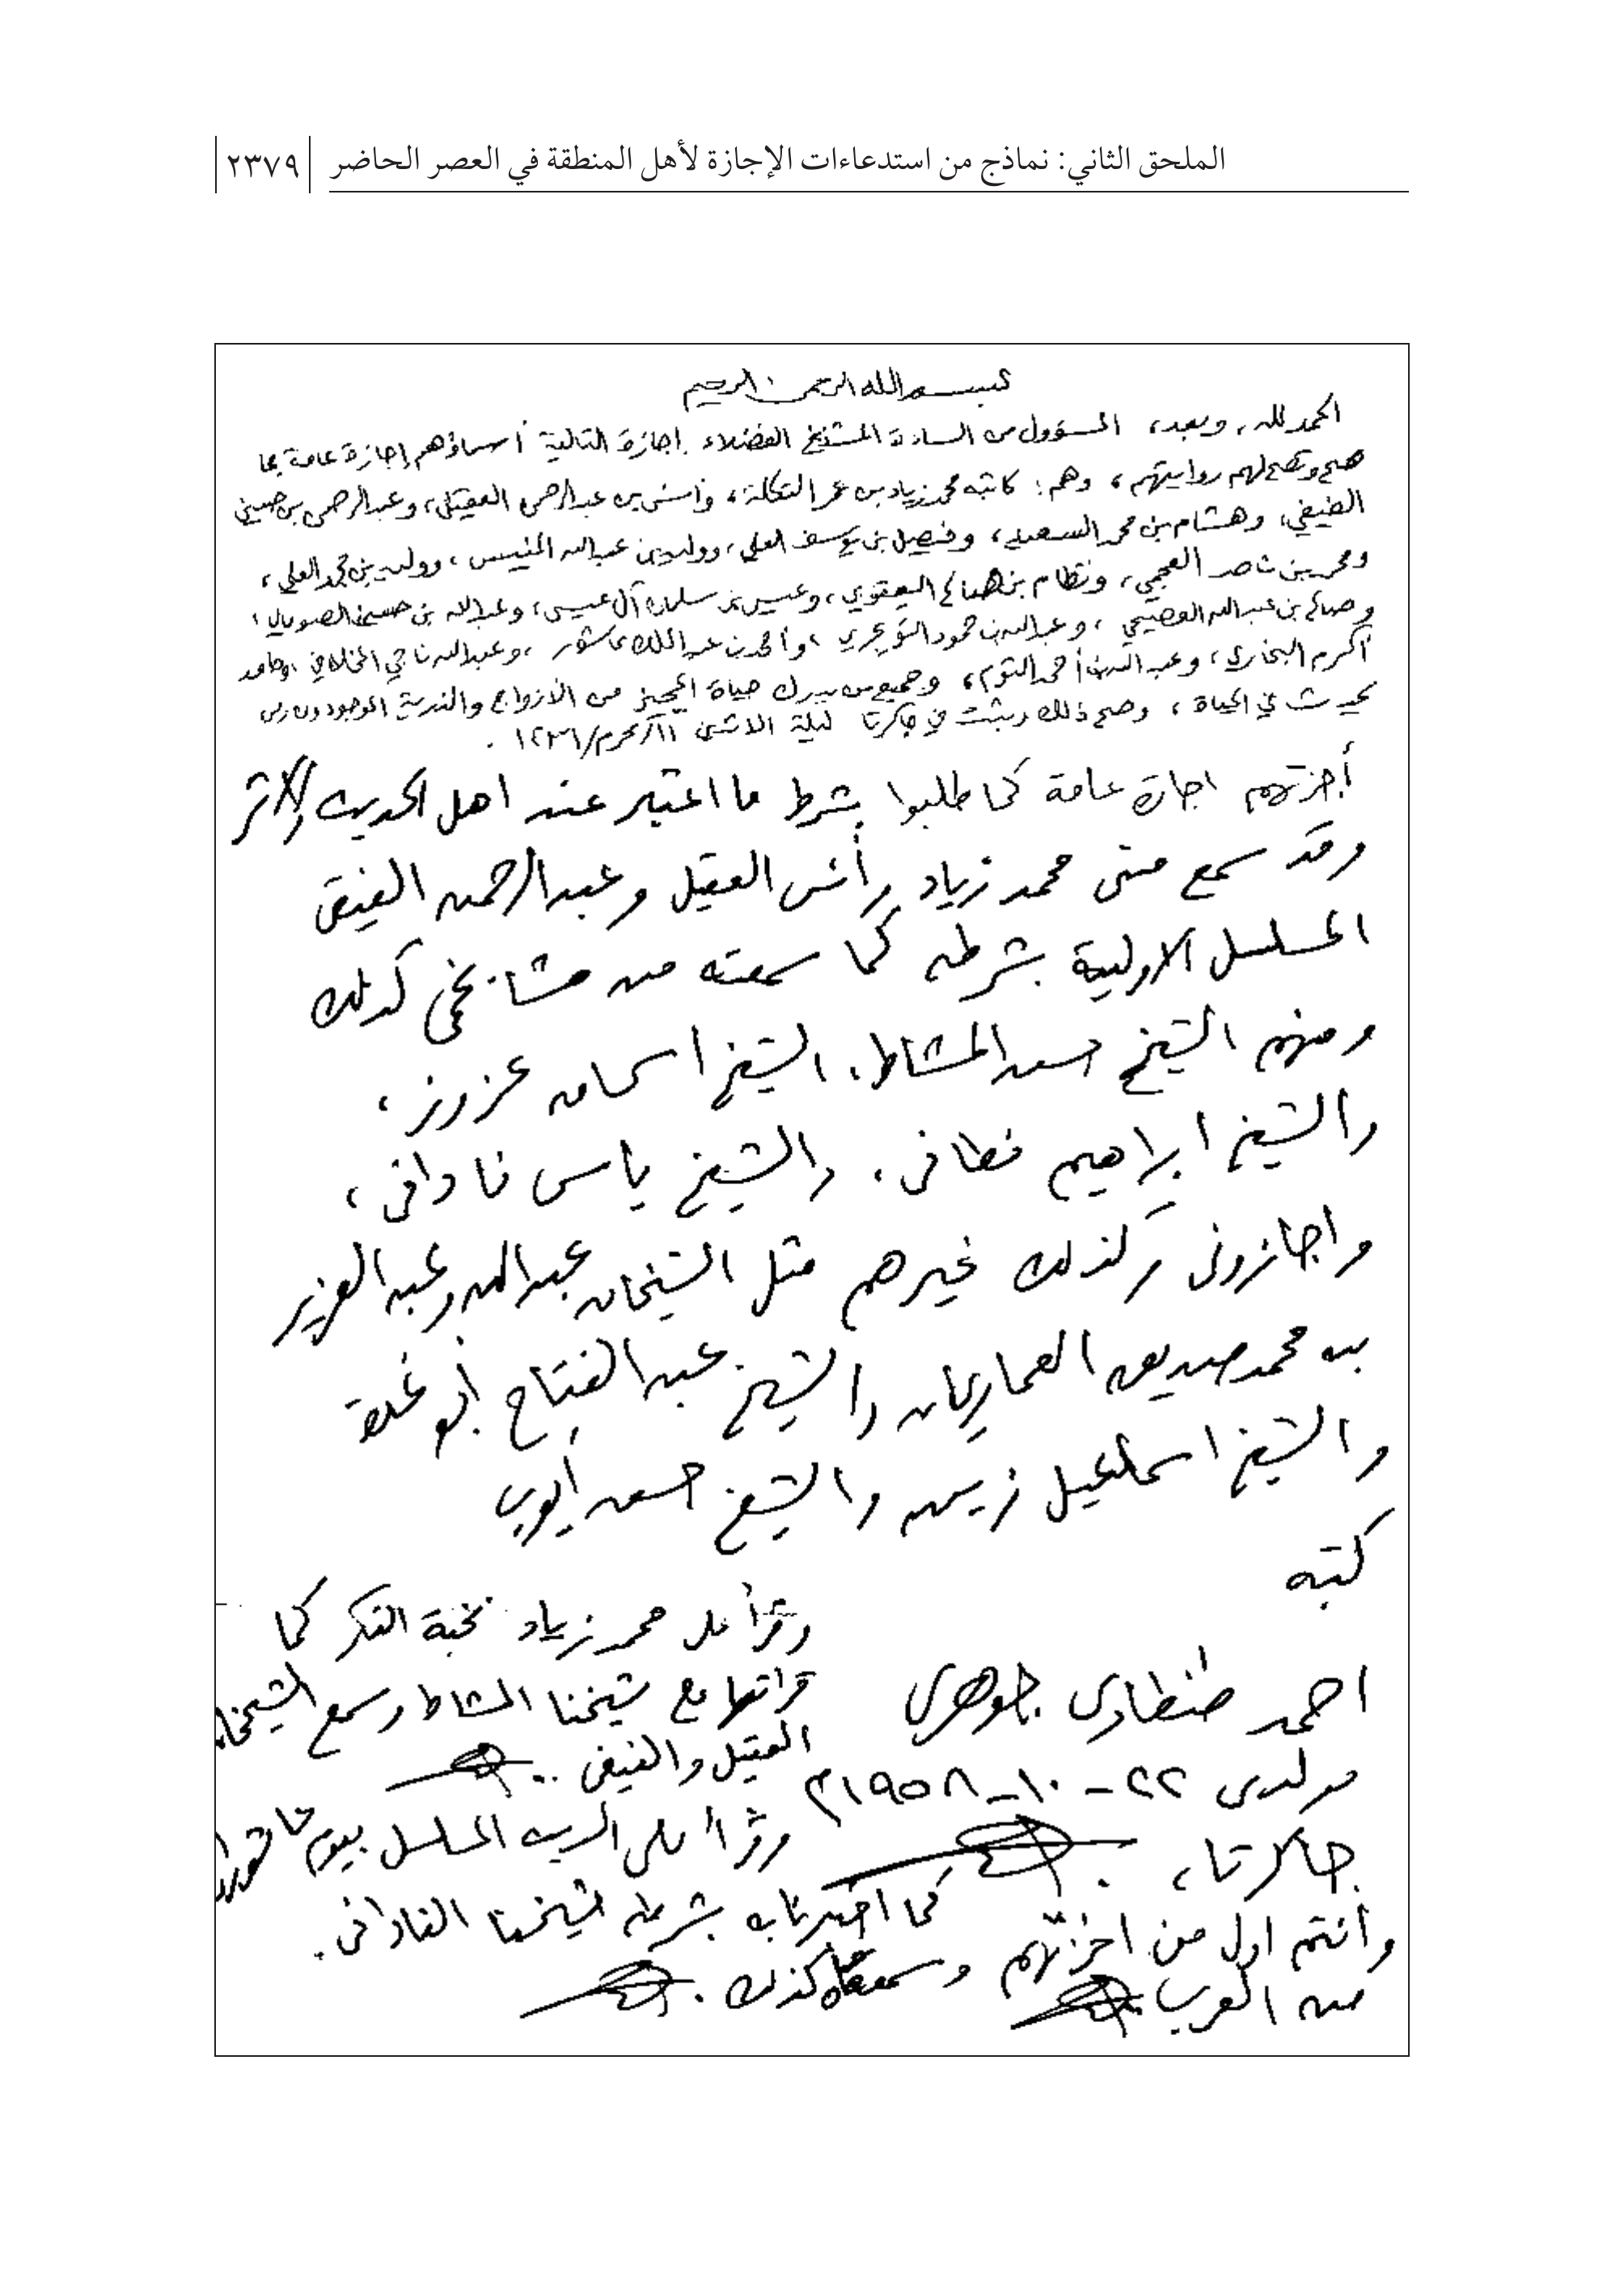 الملحق الثاني: نماذج من استدعاءات الإجازة لأهل المنطقة في العصر الحاضر ٢٣٧٩
بسم الله الرحمن الرحيم
الحمد لله، وبعد، المسؤول من السادة المشايخ الفضلاء إجازة التالية أسماؤهم إجازة عامة بما
صح وتصح لهم روايتهم، وهم: كاتبه محمد زياد بن عمر التكلة، وأنس بن عبدالرحمن العقيل، وعبدالرحمن بن حسين
الضيفي، وهشام بن محمد السعيد، وفيصل بن يوسف العلي، ووليد بن عبدالله المنيس، ووليد بن محمد العلي،
ومحمد بن ناصر العجمي، ونظام بن صالح اليعقوبي، وعيسى بن سلمان آل عيسى، وعبدالله بن حسين الصومالي،
وصالح بن عبدالله العصيمي، وعبدالله بن حمود التويجري، وأحمد بن عبدالملك عاشور، وعبدالله ناجي المخلافي، وحامد
أكرم البخاري، وعبدالله بن أحمد التوم، وجميع من يدرك حياة المجيز من الأزواج والذرية الموجودون ومن
يحدث في الحياة، وصح ذلك وثبت في جاكرتا ليلة الاثنين ١١/محرم/١٤٣١.
أجزتهم اجازة عامة كما طلبوا بشرط ما اعتبر عند اهل الحديث والاثر
وقد سمع مني محمد زياد وأنس العقيل وعبدالرحمن الفيفي
المسلسل الاولية بشرطه كما سمعته من مشايخي كذلك
ومنهم الشيخ حسن المشاط، الشيخ اسحاق عزوز،
والشيخ ابراهيم فطاني، والشيخ ياسين فاداني،
واجازوني وكذلك غيرهم مثل الشيخان عبدالله وعبدالعزيز
بن محمد صديق الغماريان والشيخ عبدالفتاح أبو غدة
والشيخ اسماعيل زين والشيخ حسن أيوب
كتبه
احمد طنطاوي جوهري
مولدي ٢٢-١٠-١٩٥٨م
جاكرتا،
وأنتم اول من اجزتهم
من العرب
وقرأ علي محمد زياد نخبة الفكر كما
قرأتها مع شيخنا المشاط وسمع الشيخان
العقيل والفيفي ..
وقرأ علي الحديث المسلسل بيوم عاشوراء
كما اخبرنا به بشرطه شيخنا الفاداني.
وسمعاه كذلك.